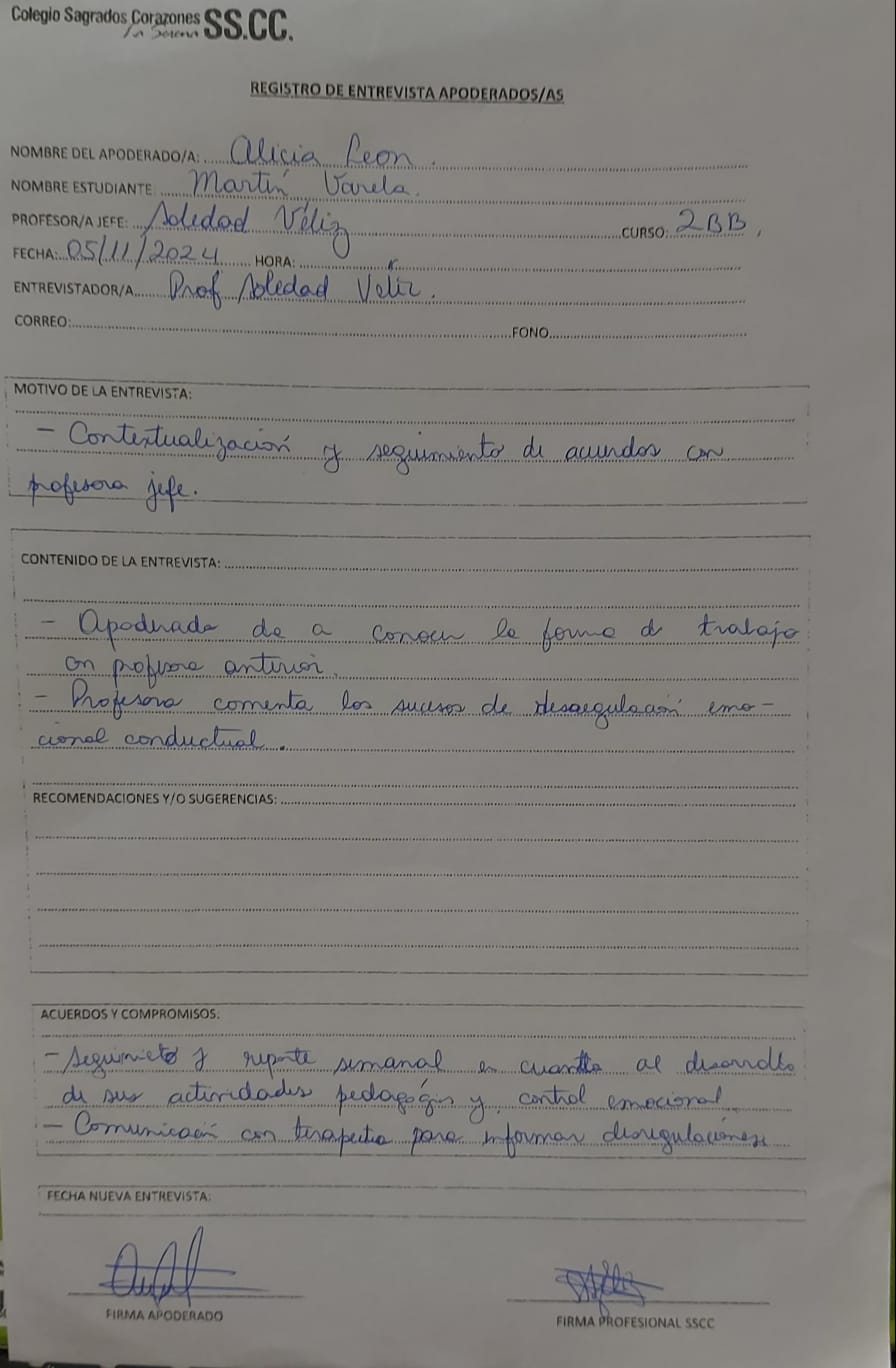 Colegio Sagrados Corazones SS.CC.
La Serena
REGISTRO DE ENTREVISTA APODERADOS/AS
NOMBRE DEL APODERADO/A: Alicia Leon.
NOMBRE ESTUDIANTE: Martín Varela.
PROFESOR/A JEFE: Soledad Véliz CURSO: 2BB,
FECHA: 05/11/2024 HORA:
ENTREVISTADOR/A Prof Soledad Veliz.
CORREO: FONO
MOTIVO DE LA ENTREVISTA:
- Contextualización y seguimiento de acuerdos con
profesora jefe.
CONTENIDO DE LA ENTREVISTA:
- Apoderada da a conocer la forma de trabajo
con profesora anterior.
- Profesora comenta los sucesos de desregulación emo-
cional conductual.
RECOMENDACIONES Y/O SUGERENCIAS:
ACUERDOS Y COMPROMISOS:
- Seguimieto y reporte semanal en cuanto al desarrollo
de sus actividades pedagógicas y control emocional
- Comunicación con terapeuta para informar desregulaciones
FECHA NUEVA ENTREVISTA:
FIRMA APODERADO
FIRMA PROFESIONAL SSCC